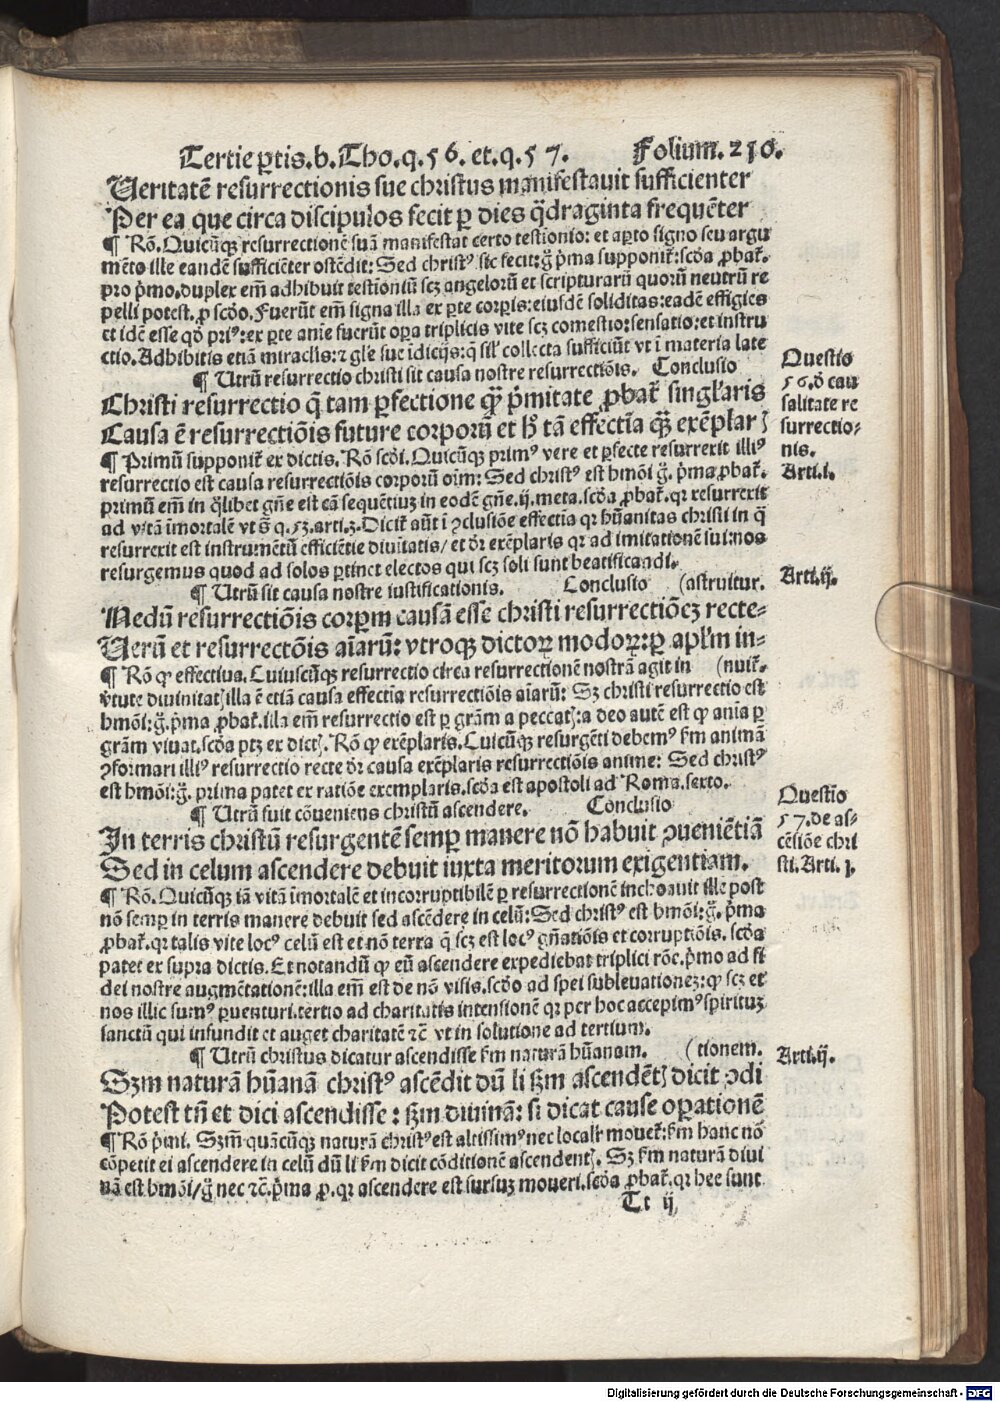 Tertie ꝑtis.b.Tho.q.56.et.q.57. Folium.210.
Ueritatē resurrectionis sue christus manifestauit sufficienter
Per ea que circa discipulos fecit ꝑ dies q̄draginta frequēter
¶ Rō. Quicūqꝫ resurrectionē suā manifestat certo testionio: et aꝑto signo seu argu
mēto ille eandē sufficiēter ostēdit: Sed christꝰ sic fecit: g̊ p̄ma supponit̄: scd̄a ꝓbat̄.
pro p̄mo. duplex em̄ adhibuit testioniū scꝫ angelorū et scripturarū quorū neutrū re
pelli potest. ꝓ scd̄o. Fuerūt em̄ signa illa ex ꝑte corꝑis: eiusdē soliditas: eadē effigies
et idē esse qd̄ priꝰ: ex ꝑte anie fuerūt oꝑa triplicis vite scꝫ comestio: sensatio: et instru
ctio. Adhibitis etiā miracl̄is: ⁊ gl̄e sue idicijs: q̄ sil̄ collecta sufficiūt vt ī materia late
¶ Utrū resurrectio christi sit causa nostre resurrectiōis. Conclusio
Christi resurrectio q̄ tam ꝑfectione qꝫ̄ p̄mitate ꝓbat̄ singl̄aris
Causa ē resurrectiōis future corporū et lꝫ tā effectīa qꝫ̄ exēplarꝭ
¶ Primū supponit̄ ex dictis. Rō scd̄i. Quicūqꝫ primꝰ vere et ꝑfecte resurrexit illiꝰ
resurrectio est causa resurrectiōis corporū oīm: Sed christꝰ est hmōi g̊. p̄ma ꝓbat̄.
primū em̄ in q̄libet gn̄e est cā sequētiuꝫ in eodē gn̄e. ij. meta. scd̄a ꝓbat̄. qꝛ resurrexit
ad vitā īmortalē vt s̄ q. 53. arti. 3. Dicit̄ aūt ī ꝯclusiōe effectīa qꝛ hūanitas christi in q̄
resurrexit est instrumētū efficiētie diuītatis/ et dꝛ̄ exēplaris qꝛ ad imitationē sui: nos
resurgemus quod ad solos ꝑtinet electos qui scꝫ soli sunt beatificandi.
¶ Utrū sit causa nostre iustificationis. Conclusio (astruitur.
Nedū resurrectiōis corꝑm causā esse christi resurrectiōēꝫ recte-
Uerū et resurrectōis aīarū: vtroqꝫ dictoꝝ modoꝝ: ꝑ apl̄'m in-
¶ Rō ꝙ effectiua. Cuiuscūqꝫ resurrectio circa resurrectionē nostrā agit in (nuit̄.
v̄tute diuinitatꝭ illa ē etiā causa effectīa resurrectiōis aīarū: Sꝫ christi resurrectio est
hmōi: g̊. p̄ma ꝓbat̄. illa em̄ resurrectio est ꝑ grām a peccatꝭ: a deo autē est ꝙ anīa ꝑ
grām viuat. scd̄a ptꝫ ex dictꝭ. Rō ꝙ exēplaris. Cuicūqꝫ resurgēti debemꝰ ẜm animā
ꝯformari illiꝰ resurrectio recte dꝛ̄ causa exēplaris resurrectiōis anime: Sed christꝰ
est hmōi: g̊. prima patet ex ratiōe exemplaris. scd̄a est apostoli ad Roma. sexto.
¶ Utrū fuit cōueniens christū ascendere. Conclusio
In terris christū resurgentē semꝑ manere nō habuit ꝯueniētiā
Sed in celum ascendere debuit iuxta meritorum exigentiam.
¶ Rō. Quicūqꝫ iā vitā īmortalē et incorruptibilē ꝑ resurrectionē inchoauit ille post
nō semꝑ in terris manere debuit sed ascēdere in celū: Sed christꝰ est hmōi: g̊. p̄ma
ꝓbat̄. qꝛ talis vite locꝰ celū est et nō terra q̄ scꝫ est locꝰ gn̄atiōis et corruptiōis. scd̄a
patet ex supra dictis. Et notandū ꝙ eū ascendere expediebat triplici rōe. p̄mo ad fi
dei nostre augmētationē: illa em̄ est de nō visis. scd̄o ad spei subleuationeꝫ: ꝙ scꝫ et
nos illic sumꝰ ꝑuenturi. tertio ad charitatis intensionē qꝛ per hoc accepimꝰ spirituꝫ
sanctū qui infundit et auget charitatē ⁊c̄ vt in solutione ad tertium.
¶ Utrū christus dicatur ascendisse ẜm naturā hūanam. (tionem.
Sꝫm naturā hūanā christꝰ ascēdit dū li ẜꝫm ascendētꝭ dicit ꝯdi
Potest tn̄ et dici ascendisse: ẜꝫm diuinā: si dicat cause oꝑationē
¶ Rō p̄mi. Sꝫm quācūqꝫ naturā christꝰ est altissimꝰ nec localr̄ mouet̄: ẜm hanc nō
cōpetit ei ascendere in celū dū li ẜm dicit cōditionē ascendentꝭ. Sꝫ ẜm naturā diui
nā est hmōi/ g̊ nec ⁊c̄. p̄ma ꝓ. qꝛ ascendere est sursuꝫ moueri. scd̄a ꝓbat̄. qꝛ hee sunt
Tt ij
Questio
56. d̄ cau
salitate re
surrectio-
nis.
Arti. i.
Arti. ij.
Questio
57. de as-
cēsiōe chri
sti. Arti. j.
Arti. ij.
Digitalisierung gefördert durch die Deutsche Forschungsgemeinschaft - DFG